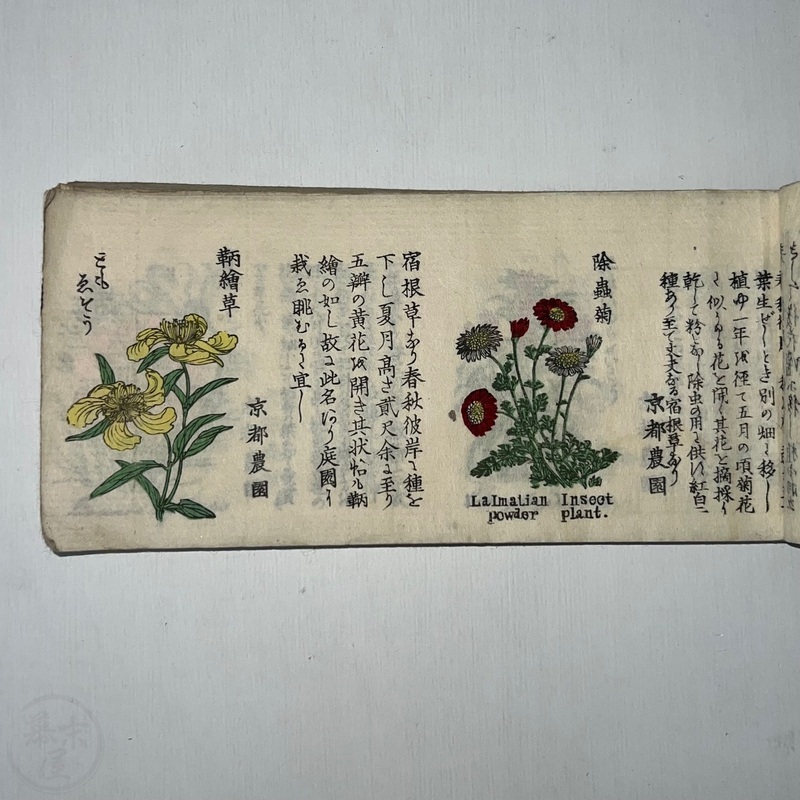 葉生ずるとき別の畑に移し
植ゆ一年を径て五月の頃菊花
に似たる花を開く其花を摘採り
乾して粉となし除虫の用に供す紅白二
種あり至て丈夫なる宿根草なり
京都農園
除蟲菊
Lalmatian Insect
powder plant.
宿根草なり春秋彼岸に種を
下し夏月高さ貳尺余に至り
五瓣の黄花を開き其状恰も鞆
繪の如し故に此名あり庭園に
栽ゑ眺むるに宜し
京都農園
鞆繪草
ともゑそう